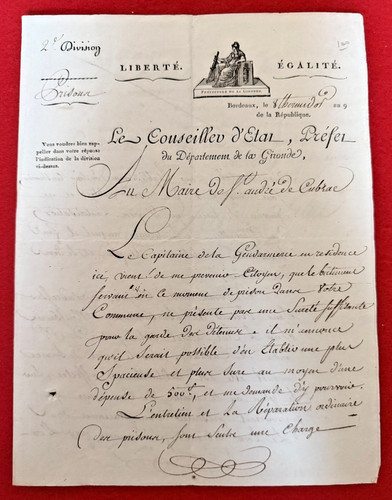 2e Division
LIBERTÉ.
ÉGALITÉ.
PRÉFECTURE DE LA GIRONDE
Prisons
Bordeaux, le 8 thermidor an 9
de la République.
Vous voudrez bien rap-
peller dans votre réponse
l'indication de la division
ci-dessus.
Le Conseiller d'Etat, Préfet
du Département de la Gironde,
Au Maire de St. andré de Cubzac
Le Capitaine de la Gendarmerie en residence
ici, vient de me prevenir Citoyen, que le bâtiment
servant en ce moment de prison dans votre
Commune, ne présente pas une Sureté suffisante
pour la garde des détenus, il m'annonce
qu'il serait possible d'en établir une plus
Spacieuse et plus sure au moyen d'une
dépense de 500 et me demande d'y pourvoir.
L'entretien et la Réparation ordinaire
des prisons, sont seuls une Charge